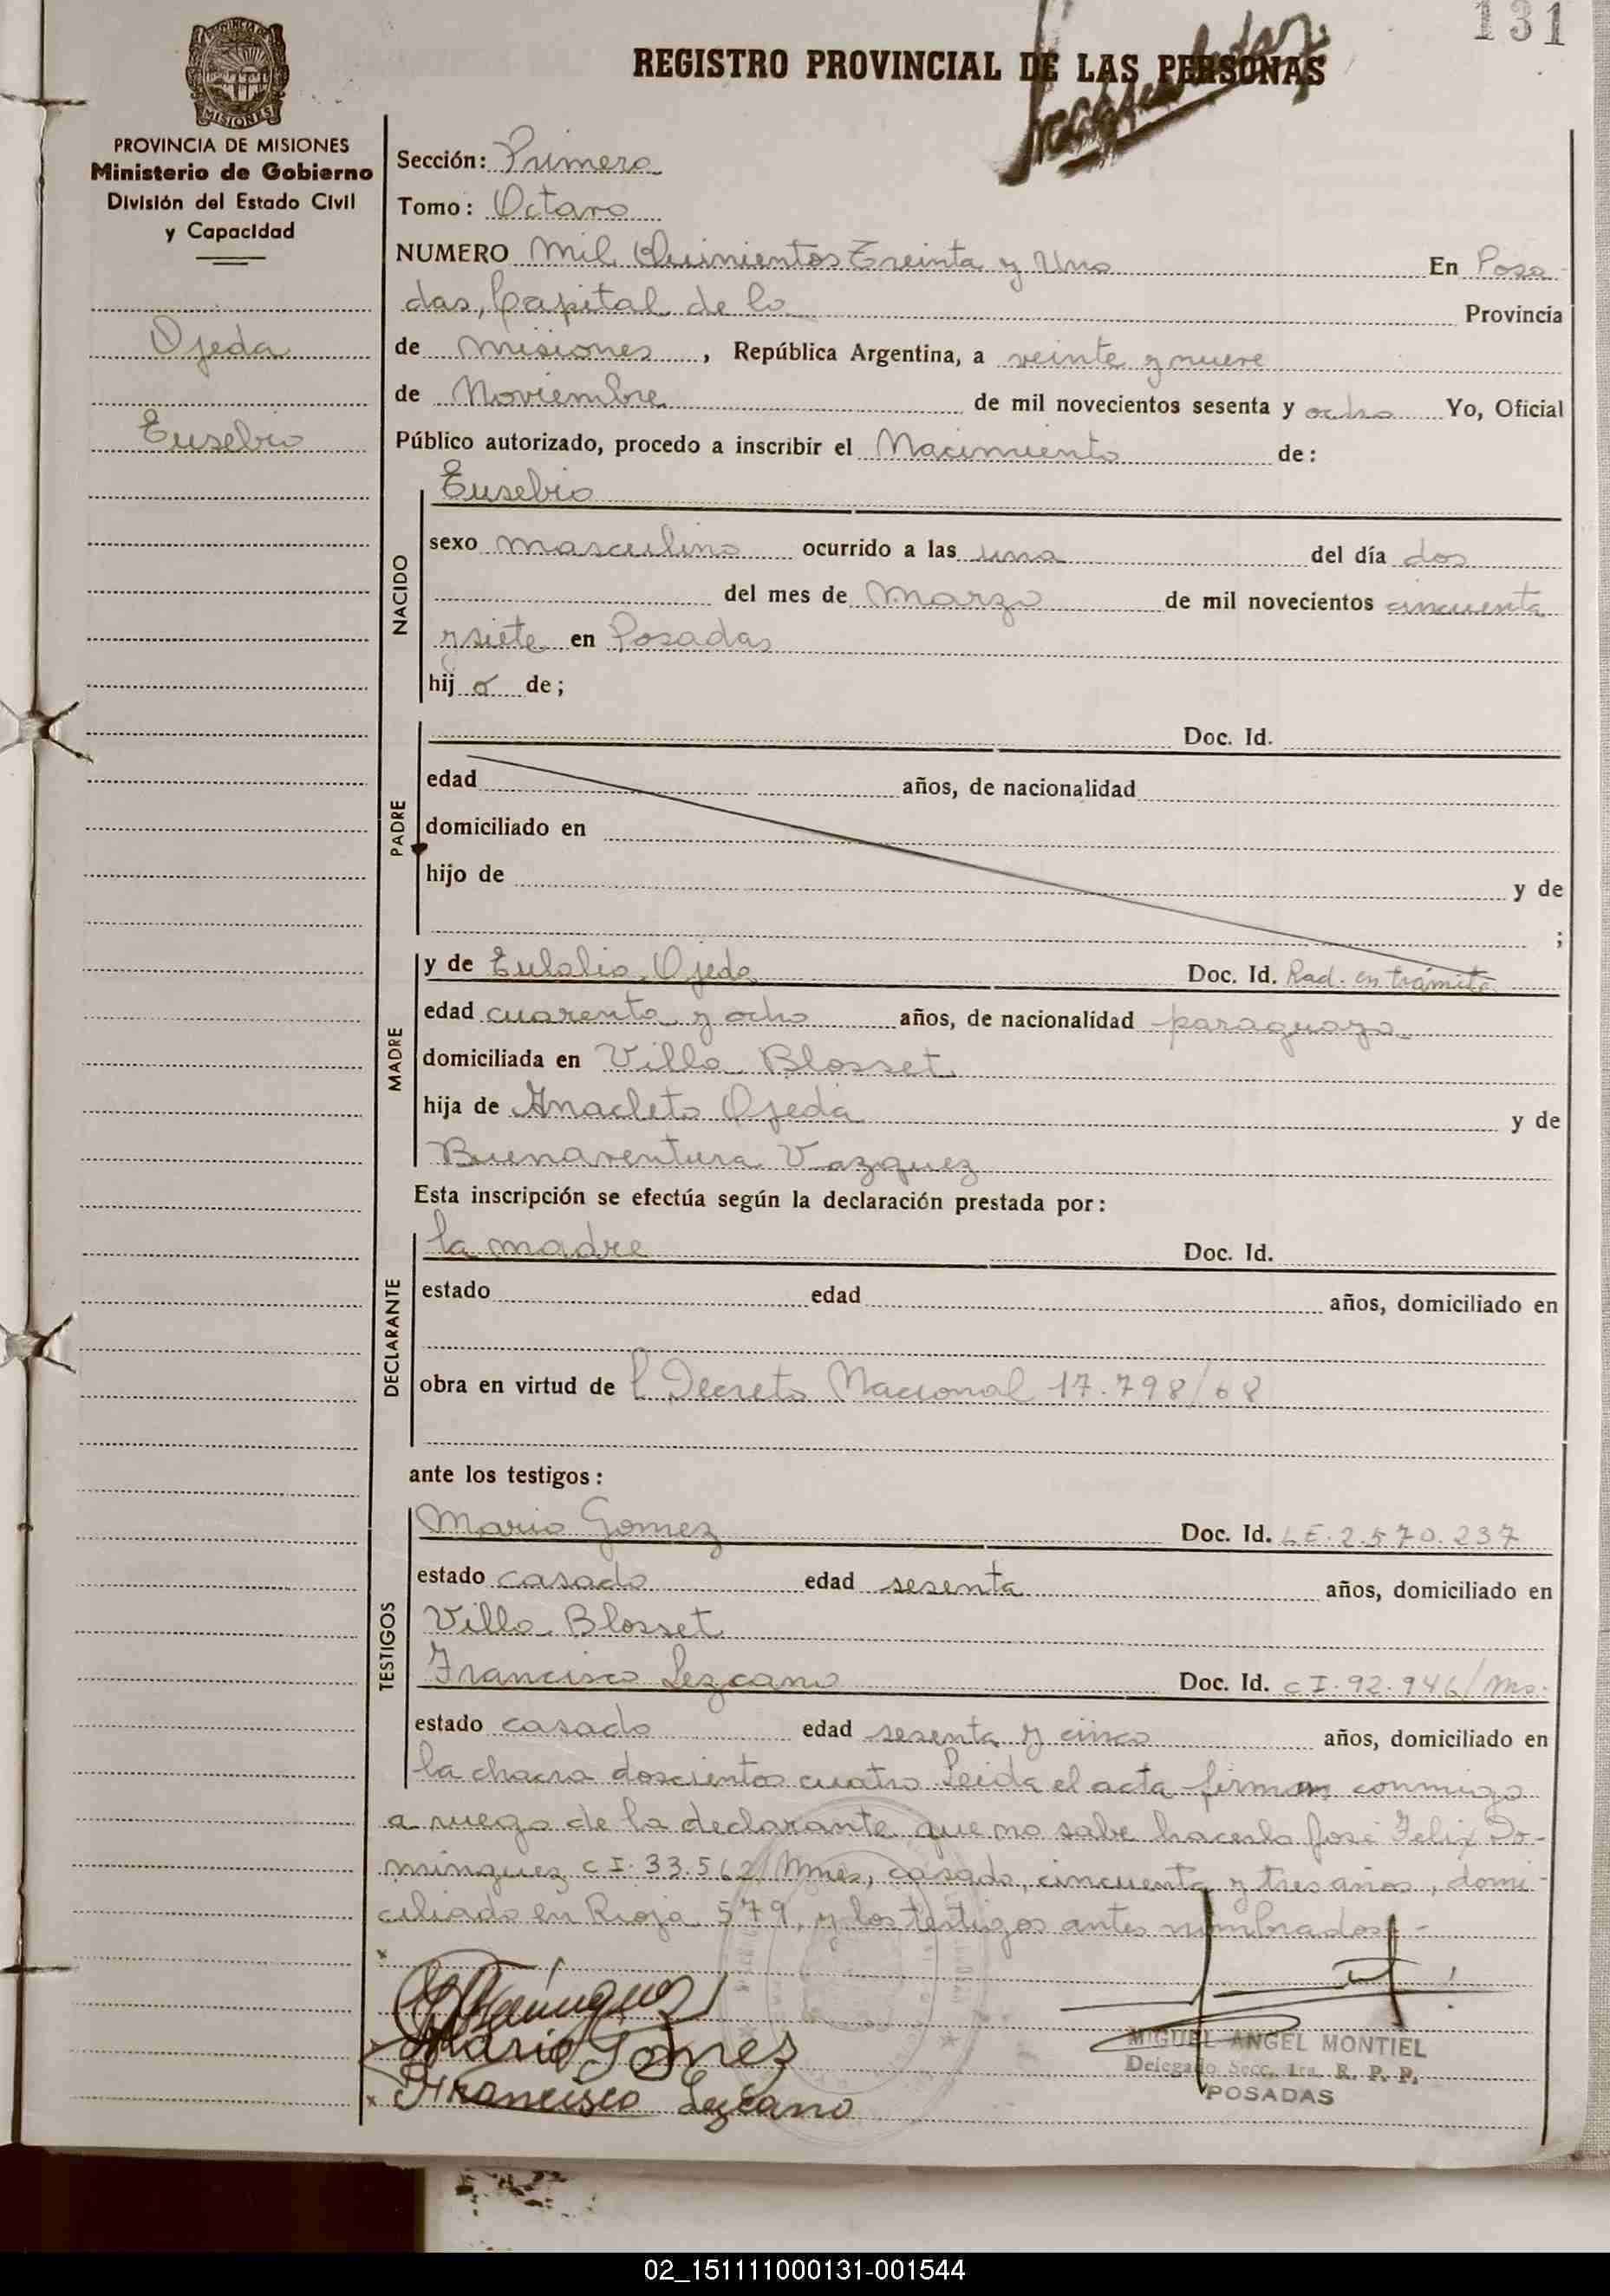 131
REGISTRO PROVINCIAL DE LAS PERSONAS
PROVINCIA DE MISIONES
MISIONES
PROVINCIA DE MISIONES
Ministerio de Gobierno
División del Estado Civil
y Capacidad
Ojeda
Eusebio
Sección: Primera
Tomo: Octavo
NUMERO Mil Quinientos Treinta y Uno En Posa
das, Capital de la Provincia
de Misiones, República Argentina, a veinte y nueve
de Noviembre de mil novecientos sesenta y ocho Yo, Oficial
Público autorizado, procedo a inscribir el Nacimiento de:
NACIDO
Eusebio
sexo masculino ocurrido a las una del día dos
del mes de Marzo de mil novecientos cincuenta
y siete en Posadas
hij o de;
PADRE
Doc. Id.
edad años, de nacionalidad
domiciliado en
hijo de y de
;
MADRE
y de Eulalia Ojeda Doc. Id. Rad. en trámite
edad cuarenta y ocho años, de nacionalidad paraguaya
domiciliada en Villa Blosset
hija de Anacleto Ojeda y de
Buenaventura Vazquez
Esta inscripción se efectúa según la declaración prestada por:
DECLARANTE
la madre Doc. Id.
estado edad años, domiciliado en
obra en virtud de l Decreto Nacional 17.798/68
ante los testigos:
TESTIGOS
Mario Gomez Doc. Id. LE. 2.570.237
estado casado edad sesenta años, domiciliado en
Villa Blosset
Francisco Lezcano Doc. Id. CI. 92.946/Ms.
estado casado edad sesenta y cinco años, domiciliado en
la chacra doscientos cuatro Leida el acta firman conmigo
a ruego de la declarante que no sabe hacerlo José Felix Do-
minguez CI. 33.562/Mnes, casado, cincuenta y tres años, domi-
ciliado en Rioja 579, y los testigos antes nombrados.-
Mario Gomez
Francisco Lezcano
MIGUEL ANGEL MONTIEL
Delegado Secc. 1ra. R. P. P.
POSADAS
02_151111000131-001544